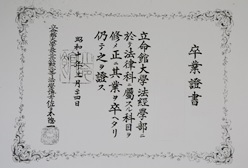 卒業證書
立命館大學法經學部ニ
於テ法律科ニ屬スル科目ヲ
修メ正ニ其業ヲ卒ヘタリ
仍テ之ヲ證ス
昭和十年三月二十四日
立命館大學長